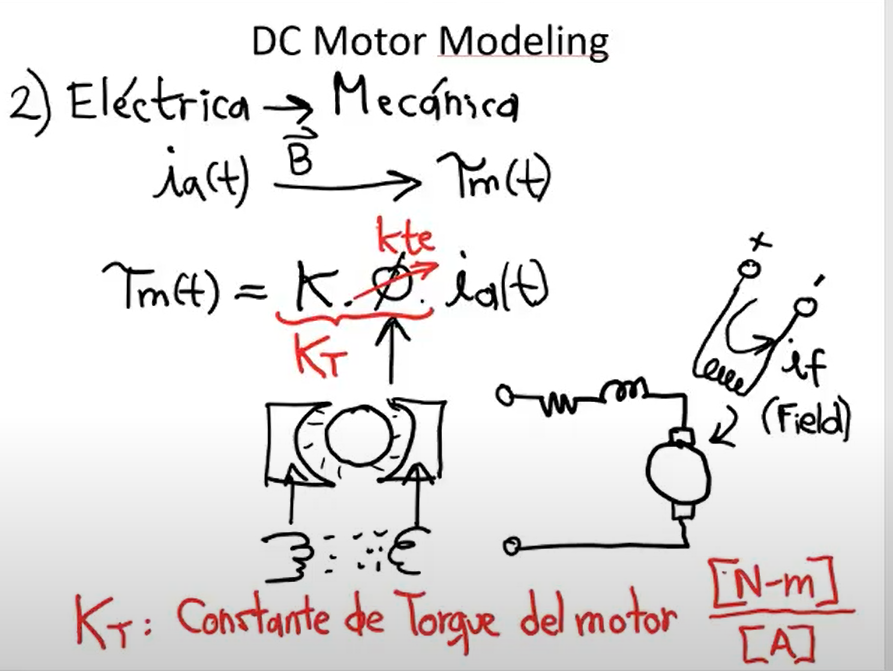 DC Motor Modeling
2) Eléctrica → Mecánica
ia(t) B⃗ → Tm(t)
kte
Tm(t) = K . Ø . ia(t)
KT
+ -
if
(Field)
KT : Constante de Torque del motor [N-m]
[A]